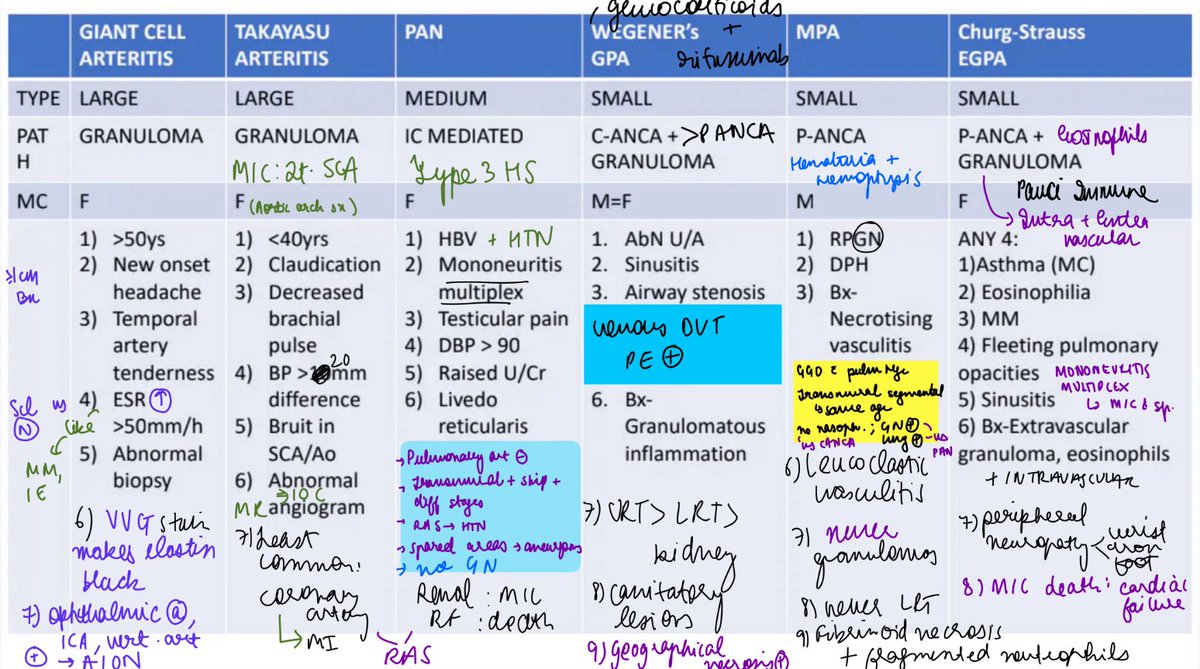 , gemocorticoids
+
rifuximab
GIANT CELL ARTERITIS
TAKAYASU ARTERITIS
PAN
WEGENER's GPA
MPA
Churg-Strauss EGPA
TYPE
LARGE
LARGE
MEDIUM
SMALL
SMALL
SMALL
PAT
H
GRANULOMA
GRANULOMA
MIC: 2t. SCA
IC MEDIATED
Type 3 HS
C-ANCA + >PANCA
GRANULOMA
P-ANCA
Hematuria +
hemoptysis
P-ANCA + Eosinophils
GRANULOMA
Pauci Immune
Intra + Extra
vascular
MC
F
F (Aortic arch sx)
F
M=F
M
F
1) >50ys
2) New onset
headache
3) Temporal
artery
tenderness
4) ESR ↑
>50mm/h
5) Abnormal
biopsy
≥1cm
Bx
N
MM,
IE
6) VVG stain
makes elastin
black
7) Ophthalmic ⓐ,
ICA, vert. art
⊕ → AION
1) <40yrs
2) Claudication
3) Decreased
brachial
pulse
4) BP >20mm
difference
5) Bruit in
SCA/Ao
6) Abnormal
angiogram
MR → IOC
7) Least
common:
coronary
artery
↳ MI
1) HBV + HTN
2) Mononeuritis
multiplex
3) Testicular pain
4) DBP > 90
5) Raised U/Cr
6) Livedo
reticularis
→ Pulmonary art ⊖
→ Transmural + skip +
diff stages
→ RAS → HTN
→ Spared areas → aneurysms
→ no GN
Renal : MIC
RF : death
RAS
1. AbN U/A
2. Sinusitis
3. Airway stenosis
venous DVT
PE ⊕
6. Bx-
Granulomatous
inflammation
7) URT > LRT >
kidney
8) cavitatory
lesions
9) Geographical
necrosis ⊕
1) RPGN
2) DPH
3) Bx-
Necrotising
vasculitis
Transmural segmental
↳ same age
; GN ⊕
vs CANCA
lung ⊕ → vs
PAN
6) Leucoclastic
vasculitis
7) never
granulomas
8) never LRT
9) Fibrinoid necrosis
+ fragmented neutrophils
ANY 4:
1)Asthma (MC)
2) Eosinophilia
3) MM
4) Fleeting pulmonary
opacities
MONONEURITIS
MULTIPLEX
5) Sinusitis
6) Bx-Extravascular
granuloma, eosinophils
+ INTRAVASCULAR
7) peripheral
neuropathy < wrist
drop
foot
8) MIC death: cardiac
failure